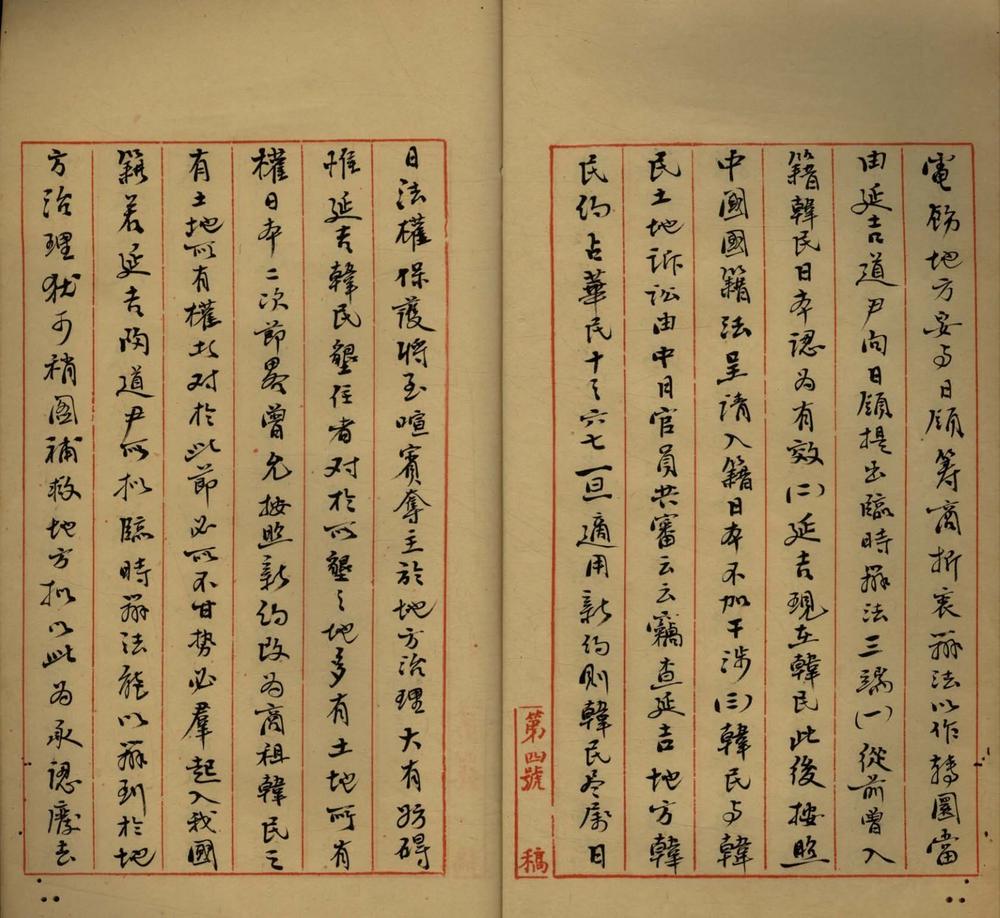 電飭地方妥与日領籌商折衷辦法以作轉圜當
由延吉道尹向日領提出臨時辦法三端(一)從前曾入
籍韓民日本認为有效(二)延吉現在韓民此後按照
中國國籍法呈請入籍日本不加干涉(三)韓民与韓
民土地訴訟由中日官員共審云云竊查延吉地方韓
民約占華民十之六七一旦適用新約則韓民尽属日
第四號 稿
日法權保護將至喧賓奪主於地方治理大有妨碍
惟延吉韓民墾住者对於所墾之地多有土地所有
權日本二次節畧曾允按照新約改为商租韓民之
有土地所有權者对於此節必所不甘势必羣起入我國
籍若延吉陶道尹所拟臨時辦法能以辦到於地
方治理犹可稍圖補救地方拟以此为承認廢去